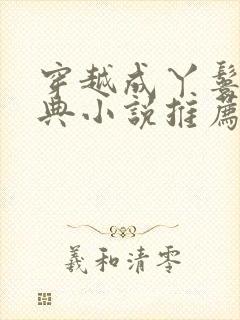 穿越成丫鬟
典小说推薦
羲和清零